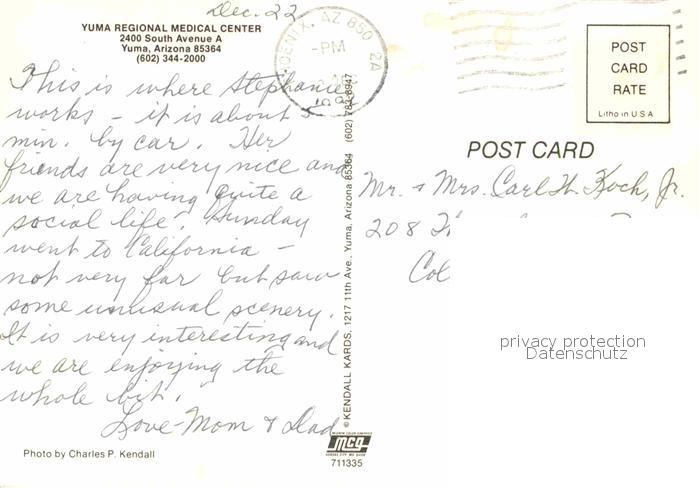 Dec. 22
YUMA REGIONAL MEDICAL CENTER
2400 South Avenue A
Yuma, Arizona 85364
(602) 344-2000
This is where Stephanie
works - it is about 5
min. by car. Her
friends are very nice and
we are having quite a
social life. Sunday
went to California -
not very far but saw
some unusual scenery.
It is very interesting and
we are enjoying the
whole bit.
Love - Mom & Dad
Photo by Charles P. Kendall
© KENDALL KARDS, 1217 11th Ave., Yuma, Arizona 85364 (602) 783-8947
mcg
711335
PHOENIX, AZ 850
PM
2A
POST
CARD
RATE
Litho in U.S.A
POST CARD
Mr. & Mrs. Carl H. Koch, Jr.
208
Col
privacy protection
Datenschutz